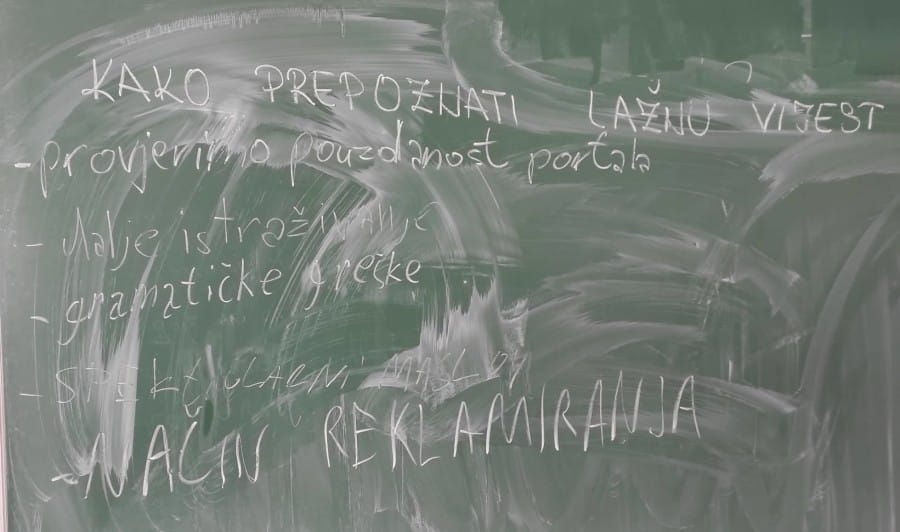 KAKO PREPOZNATI LAŽNU VIJEST
- provjerimo pouzdanost portala
- dalje istraživanje
- gramatičke greške
- SPEKTAKULARNI NASLOVI
- NAČIN REKLAMIRANJA